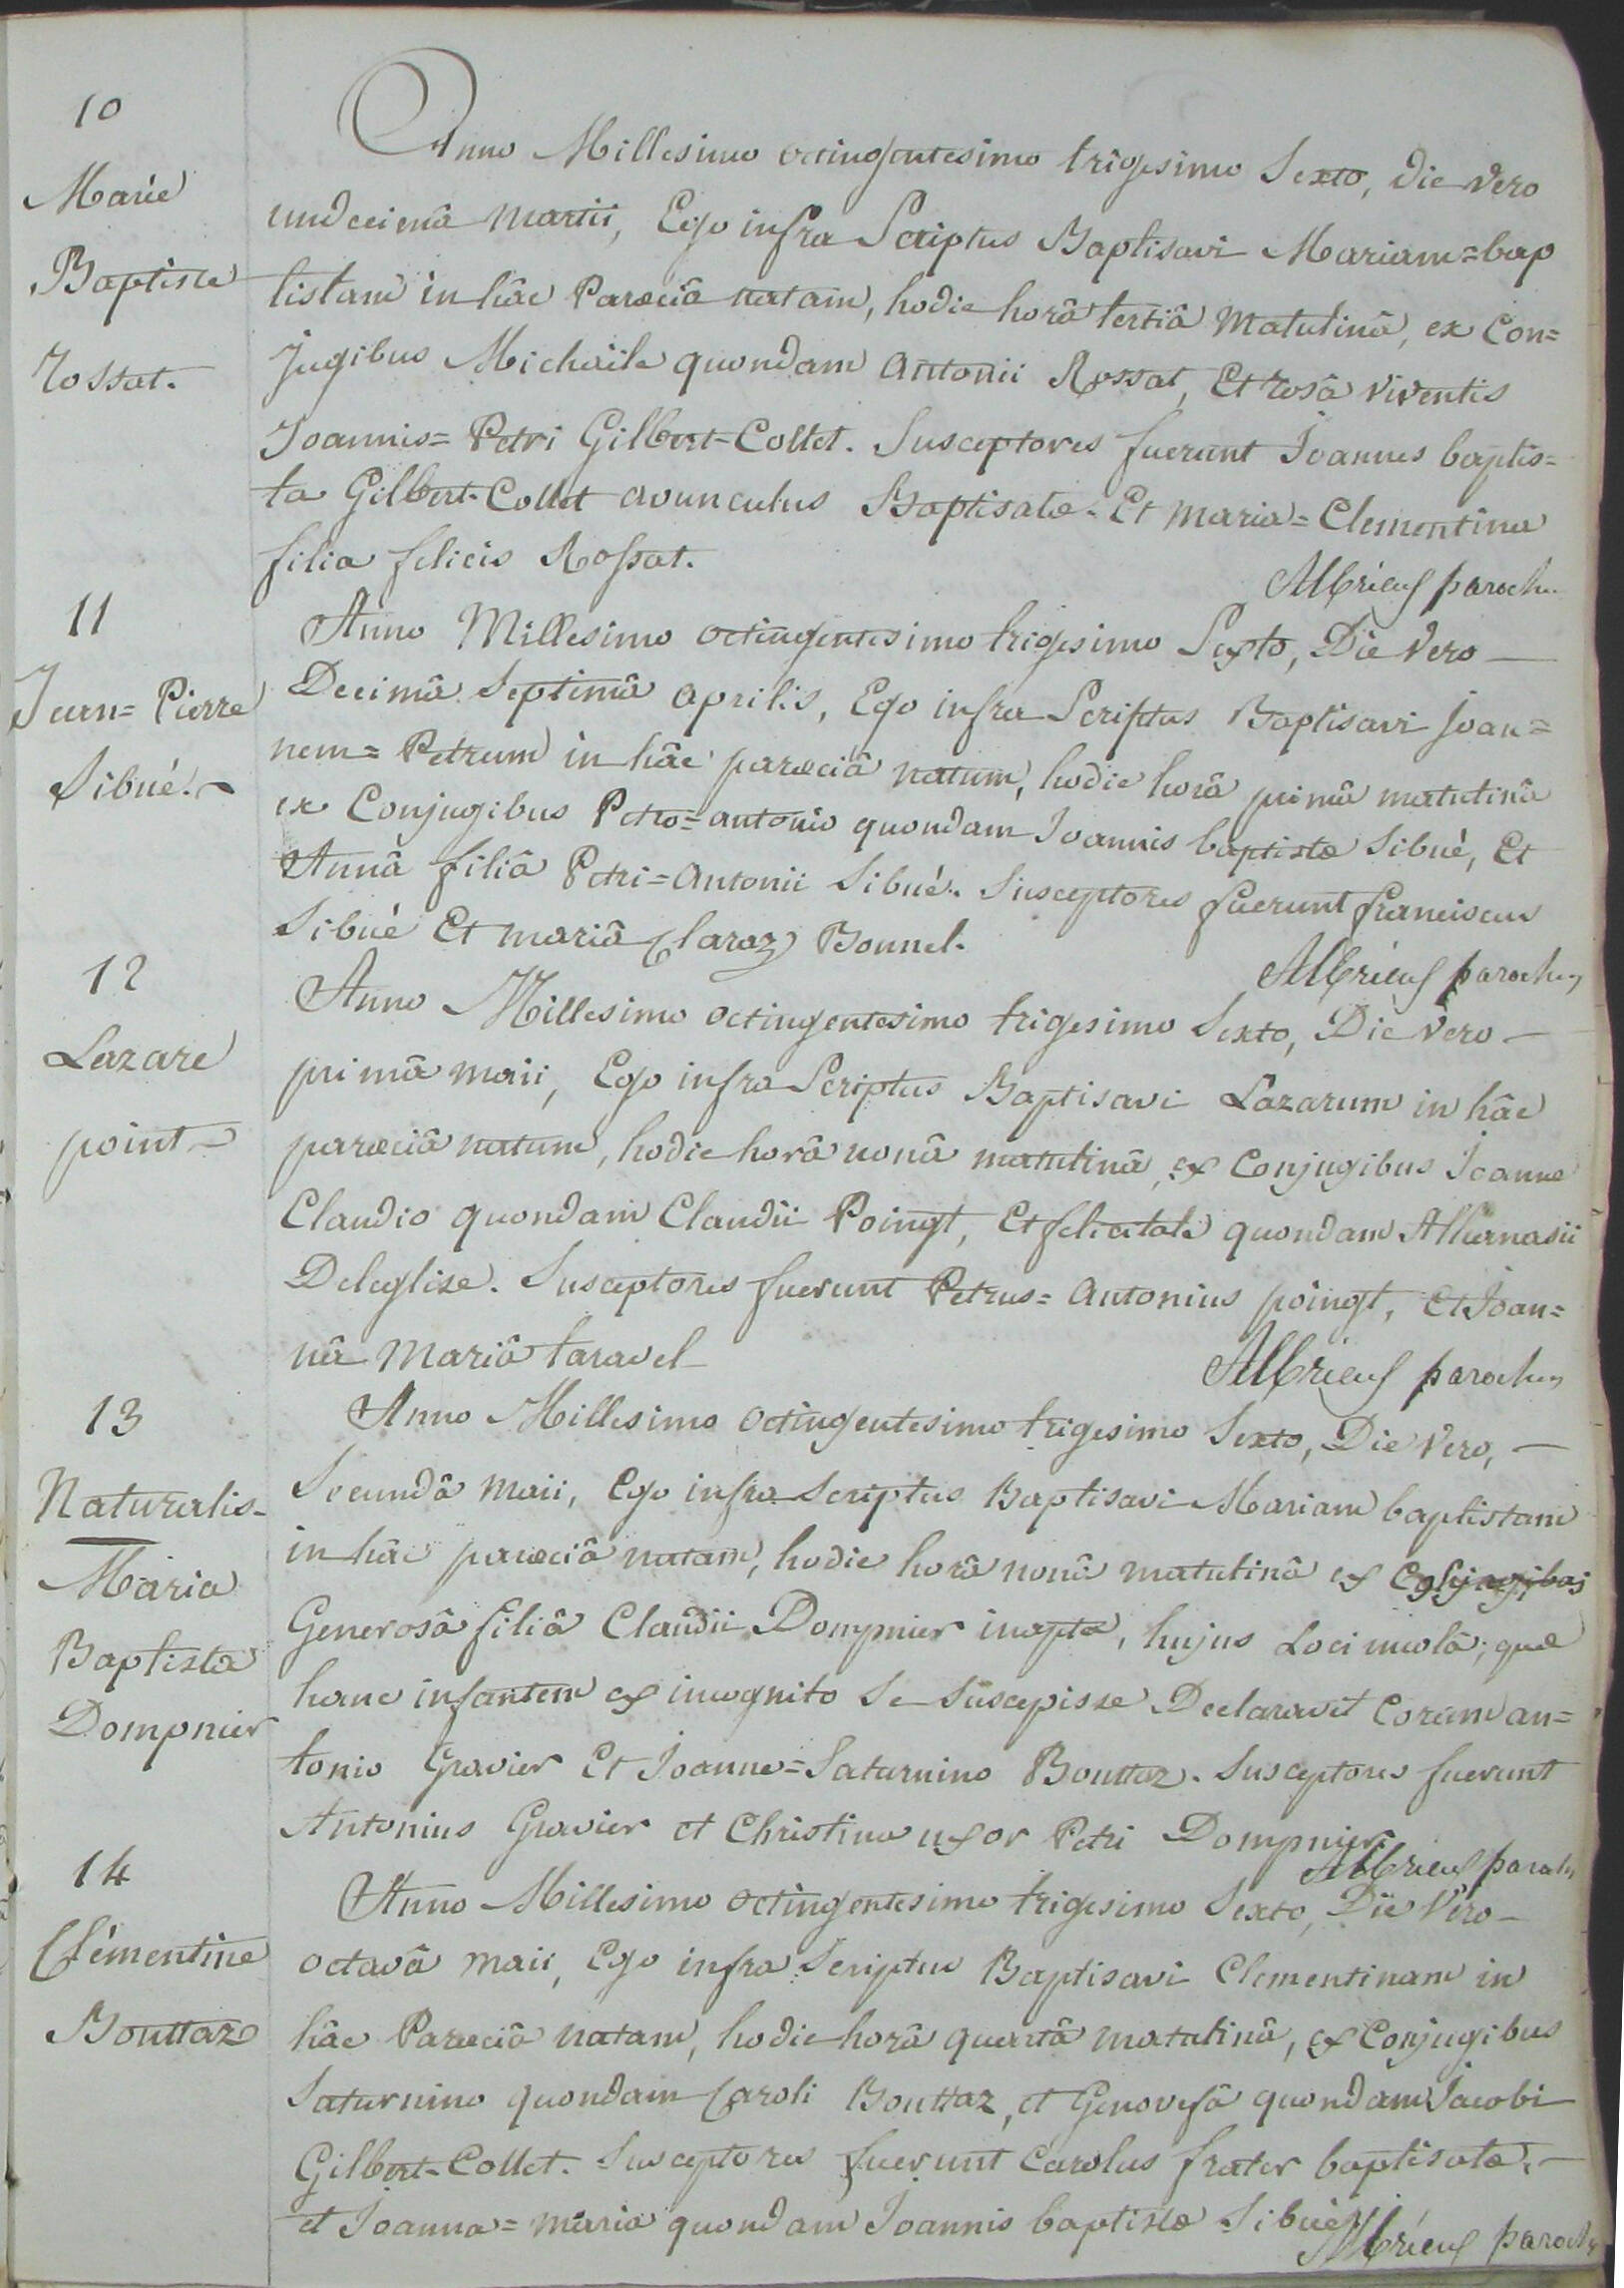 10
Marie
Baptiste
rossat.
Anno Millesimo octingentesimo trigesimo Sexto, die vero
undecimâ martii, Ego infra Scriptus Baptisavi Mariam=bap
tistam in hâc Parœciâ natam, hodie horâ tertiâ matutinâ, ex Con=
jugibus Michaële quondam Antonii Rossat, Et rosâ viventis
Joannis=Petri Gilbert-Collet. Susceptores fuerunt Joannes baptis=
ta Gilbert-Collet avunculus Baptisatæ. Et maria=Clementina
filia felicis Rossat.
Albrieux paroch.
11
Jean=Pierre
Sibué.
Anno Millesimo octingentesimo trigesimo Sexto, Die vero
Decimâ Septimâ aprilis, Ego infra Scriptus Baptisavi joan=
nem=Petrum in hâc parœciâ natum, hodie horâ primâ matutinâ
ex Conjugibus Petro=antonio quondam Joannis baptistæ Sibué, Et
Annâ filiâ Petri=Antonii Sibué. Susceptores fuerunt franciscus
Sibué Et mariâ Claraz Bonnel.
Albrieux parochus
12
Lazare
point
Anno Millesimo octingentesimo trigesimo Sexto, Die vero
primâ maii, Ego infra Scriptus Baptisavi Lazarum in hâc
parœciâ natum, hodie horâ nonâ matutinâ, ex Conjugibus Joanne
Claudio quondam Claudii Poingt, Et felicitate quondam Athanasii
Deleglise. Susceptores fuerunt Petrus=Antonius poingt, Et Joan=
nâ Mariâ taravel
Albrieux parochus
13
Naturalis
Maria
Baptista
Dompnier
Anno Millesimo octingentesimo trigesimo Sexto, Die Vero,
Secundâ maii, Ego infra Scriptus Baptisavi Mariam baptistam
in hâc parœciâ natam, hodie horâ nonâ matutinâ ex Conjugibus
Generosâ filiâ Claudii Dompnier inupta, hujus Loci incolâ; quæ
hanc infantem ex incognito Se Suscepisse Declaravit Coram an=
tonio Gravier Et Joanne=Saturnino Bouttaz. Susceptores fuerunt
Antonius Gravier et Christina uxor Petri Dompnier.
Albrieux paroch
14
Clémentine
Bouttaz
Anno Millesimo octingentesimo trigesimo Sexto, Die Vero
octavâ maii, Ego infra Scriptus Baptisavi Clementinam in
hâc Parœciâ natam, hodie horâ quartâ matutinâ, ex Conjugibus
Saturnino quondam Caroli Bouttaz, et Genovefâ quondam Jacobi
Gilbert-Collet. Susceptores fuerunt Carolus frater baptisatæ,
et Joanna=maria quondam Joannis baptistæ Sibué.
Albrieux paroch